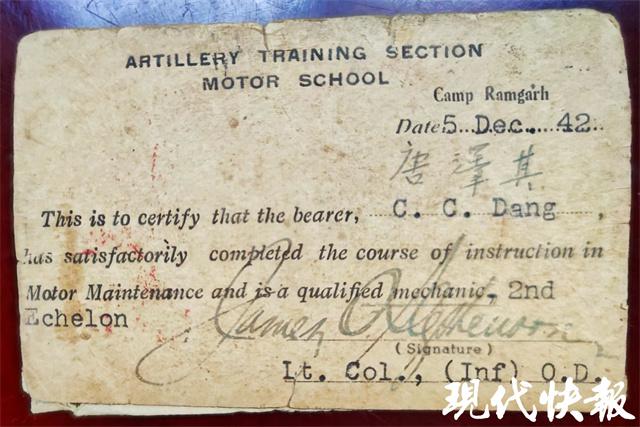 ARTILLERY TRAINING SECTION
MOTOR SCHOOL
Camp Ramgarh
Date 5 Dec. 42
唐澤其
This is to certify that the bearer, C. C. Dang,
has satisfactorily completed the course of instruction in
Motor Maintenance and is a qualified mechanic. 2nd
Echelon
James
(Signature)
Lt. Col., (Inf) O.D.
现代快报